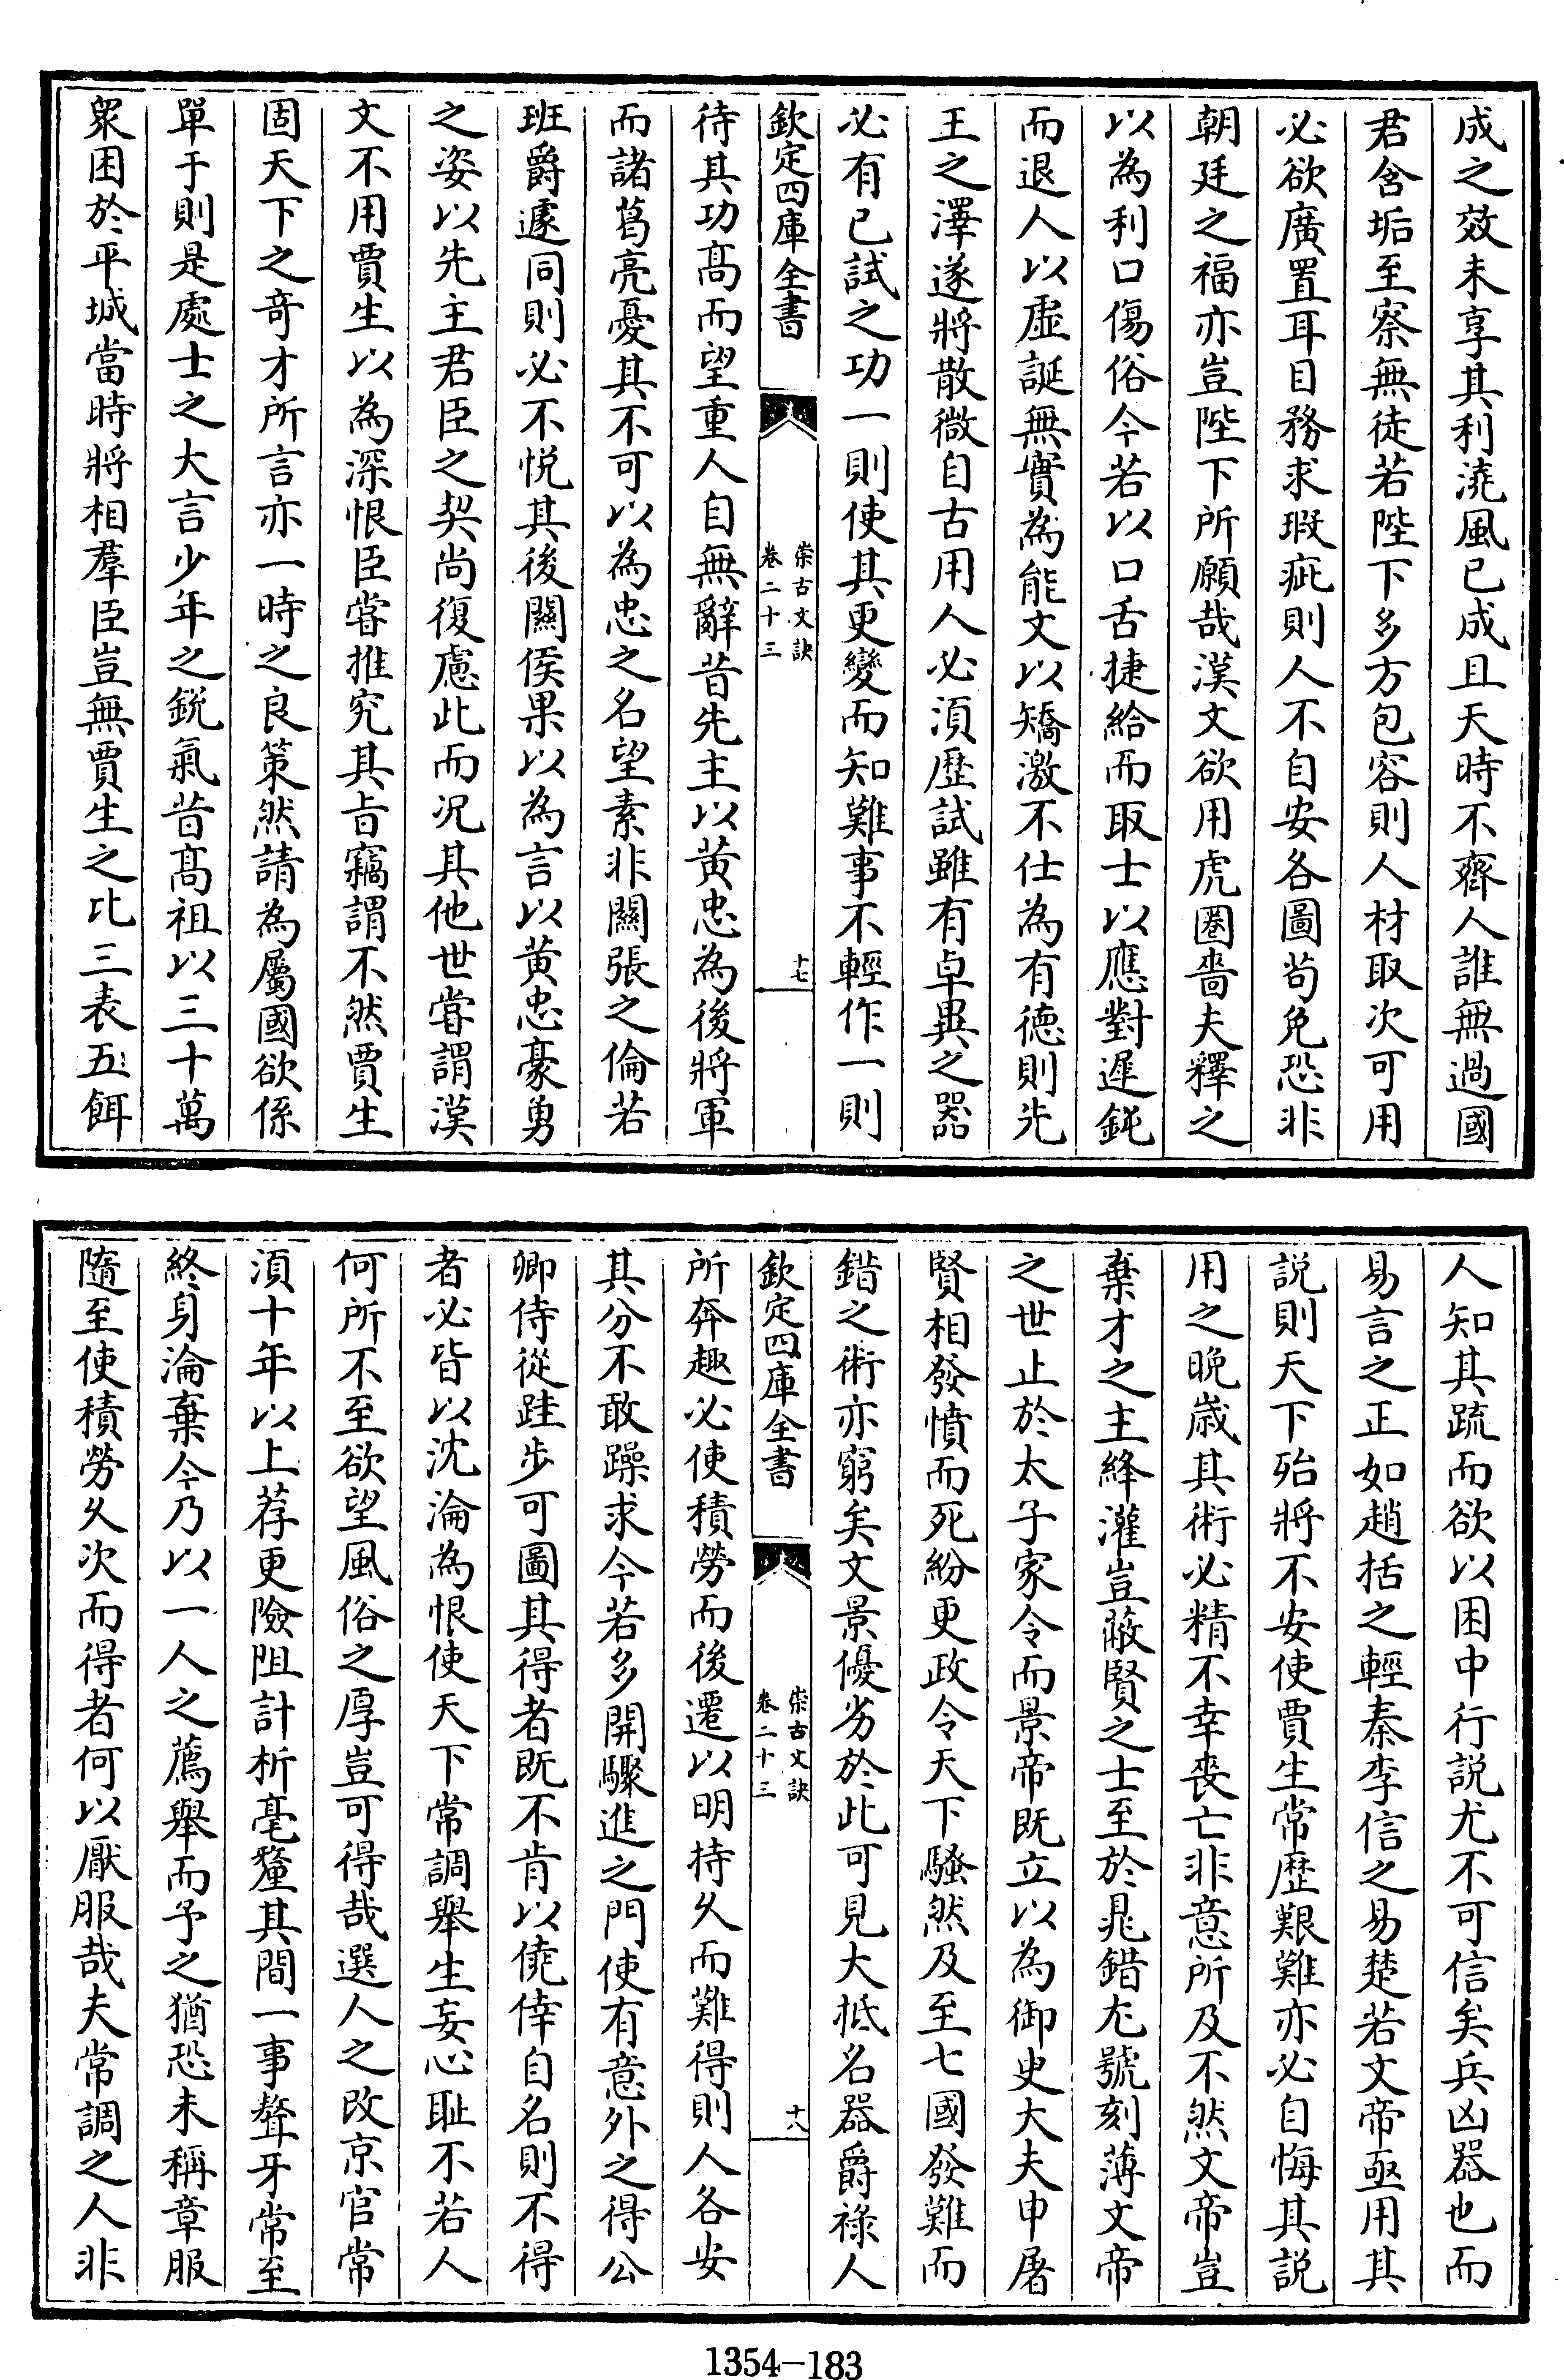 成之效未享其利澆風已成且天時不齊人誰無過國
君含垢至察無徒若陛下多方包容則人材取次可用
必欲廣置耳目務求瑕疵則人不自安各圖苟免恐非
朝廷之福亦豈陛下所願哉漢文欲用虎圈嗇夫釋之
以為利口傷俗今若以口舌捷給而取士以應對遲鈍
而退人以虛誕無實為能文以矯激不仕為有德則先
王之澤遂將散微自古用人必須歴試雖有卓異之器
必有已試之功一則使其更變而知難事不輕作一則
欽定四庫全書
崇古文訣
卷二十三
十七
待其功髙而望重人自無辭昔先主以黄忠為後將軍
而諸葛亮憂其不可以為忠之名望素非關張之倫若
班爵遽同則必不悦其後關侯果以為言以黄忠豪勇
之姿以先主君臣之契尚復慮此而况其他世嘗謂漢
文不用賈生以為深恨臣嘗推究其㫖竊謂不然賈生
固天下之奇才所言亦一時之良策然請為屬國欲係
單于則是處士之大言少年之鋭氣昔髙祖以三十萬
衆困於平城當時將相羣臣豈無賈生之比三表五餌
人知其疏而欲以困中行説尤不可信矣兵凶器也而
易言之正如趙括之輕秦李信之易楚若文帝亟用其
説則天下殆將不安使賈生常歴艱難亦必自悔其説
用之晚歳其術必精不幸喪亡非意所及不然文帝豈
棄才之主絳灌豈蔽賢之士至於鼂錯尤號刻薄文帝
之世止於太子家令而景帝既立以為御史大夫申屠
賢相發憤而死紛更政令天下騷然及至七國發難而
錯之術亦窮矣文景優劣於此可見大抵名器爵禄人
欽定四庫全書
崇古文訣
卷二十三
十八
所奔趣必使積勞而後遷以明持久而難得則人各安
其分不敢躁求今若多開驟進之門使有意外之得公
卿侍從跬步可圖其得者既不肯以僥倖自名則不得
者必皆以沈淪為恨使天下常調舉生妄心耻不若人
何所不至欲望風俗之厚豈可得哉選人之改京官常
須十年以上荐更險阻計析毫釐其間一事聱牙常至
終身淪棄今乃以一人之薦舉而予之猶恐未稱章服
隨至使積勞久次而得者何以厭服哉夫常調之人非
1354—183